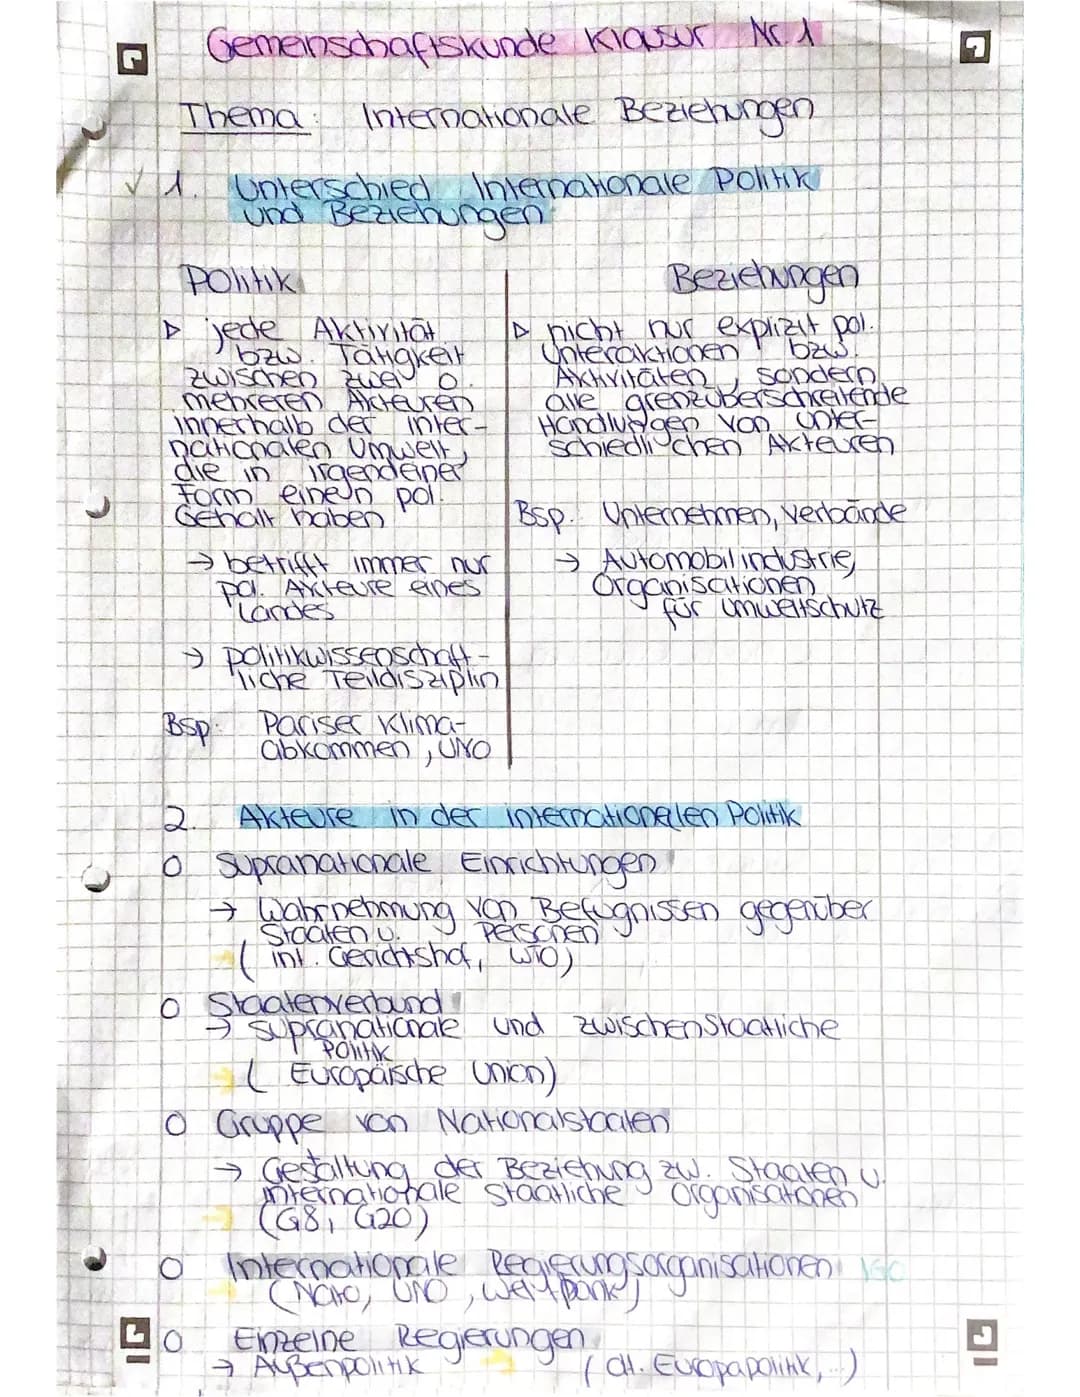 Gemeinschaftskunde Klausur Nr. 1
Thema: Internationale Beziehungen
✓ 1. Unterschied Internationale Politik
und Beziehungen
Politik
▷ jede Aktivität
bzw. Tätigkeit
zwischen zwei o.
mehreren Akteuren
innerhalb der inter-
nationalen Umwelt,
die in irgendeiner
Form einen pol.
Gehalt haben
→ betrifft immer nur
pol. Akteure eines
Landes
→ politikwissenschaft-
liche Teildisziplin
Bsp: Pariser Klima-
abkommen, UNO
Beziehungen
▷ nicht nur explizit pol.
Interaktionen bzw.
Aktivitäten, sondern
alle grenzüberschreitende
Handlungen von unter-
schiedlichen Akteuren
Bsp. Unternehmen, Verbände
→ Automobilindustrie,
Organisationen
für Umweltschutz
2. Akteure in der internationalen Politik
O Supranationale Einrichtungen
→ Wahrnehmung von Befugnissen gegenüber
Staaten u. Personen
(int. Gerichtshof, WTO)
O Staatenverbund
→ supranationale und zwischenstaatliche
Politik
(Europäische Union)
O Gruppe von Nationalstaaten
→ Gestaltung der Beziehung zw. Staaten u.
internationale staatliche Organisationen
(G8, G20)
O Internationale Regierungsorganisationen IGO
(Nato, UNO, Weltbank)
O Einzelne Regierungen
→ Außenpolitik (dt. Europapolitik, ...)